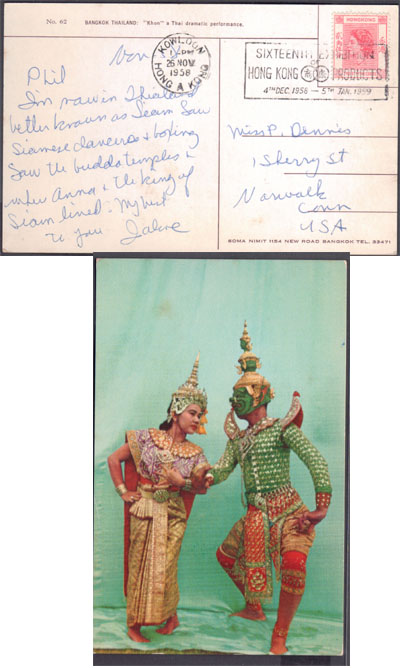 No. 62 BANGKOK THAILAND: "Khon" a Thai dramatic performance.
KOWLOON
1 - PM
26 NOV
1958
HONG KONG
HONG KONG
SIXTEENTH EXHIBITION
OF
HONG KONG PRODUCTS
4TH DEC. 1958 — 5TH JAN. 1959
Nov
Phil
I'm now in Thailand
better known as Seam Saw
Siamese dancers & boxing
Saw the budda temples &
where Anna & the king of
Siam lived. My best
to you
Miss P. Dennis
1 Sherry St
Norwalk
Conn
USA
SOMA NIMIT 1154 NEW ROAD BANGKOK TEL. 33471